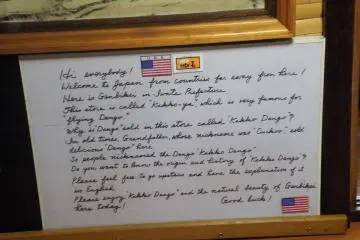 Hi everybody!
Welcome to Japan from countries far away from here!
Here is Genbikei in Iwate Prefecture.
This store is called "Kakko-ya", which is very famous for
"flying Dango".
Why is Dango sold in this store called "Kakko Dango"?
In old times, Grandfather, whose nickname was "Cuckoo", sold
delicious Dango here.
So people nicknamed the Dango "Kakko Dango".
Do you want to know the origin and history of "Kakko Dango"?
Please feel free to go upstairs and have the explanation of it
in English.
Please enjoy "Kakko Dango" and the natural beauty of Genbikei
here today!
Good luck!